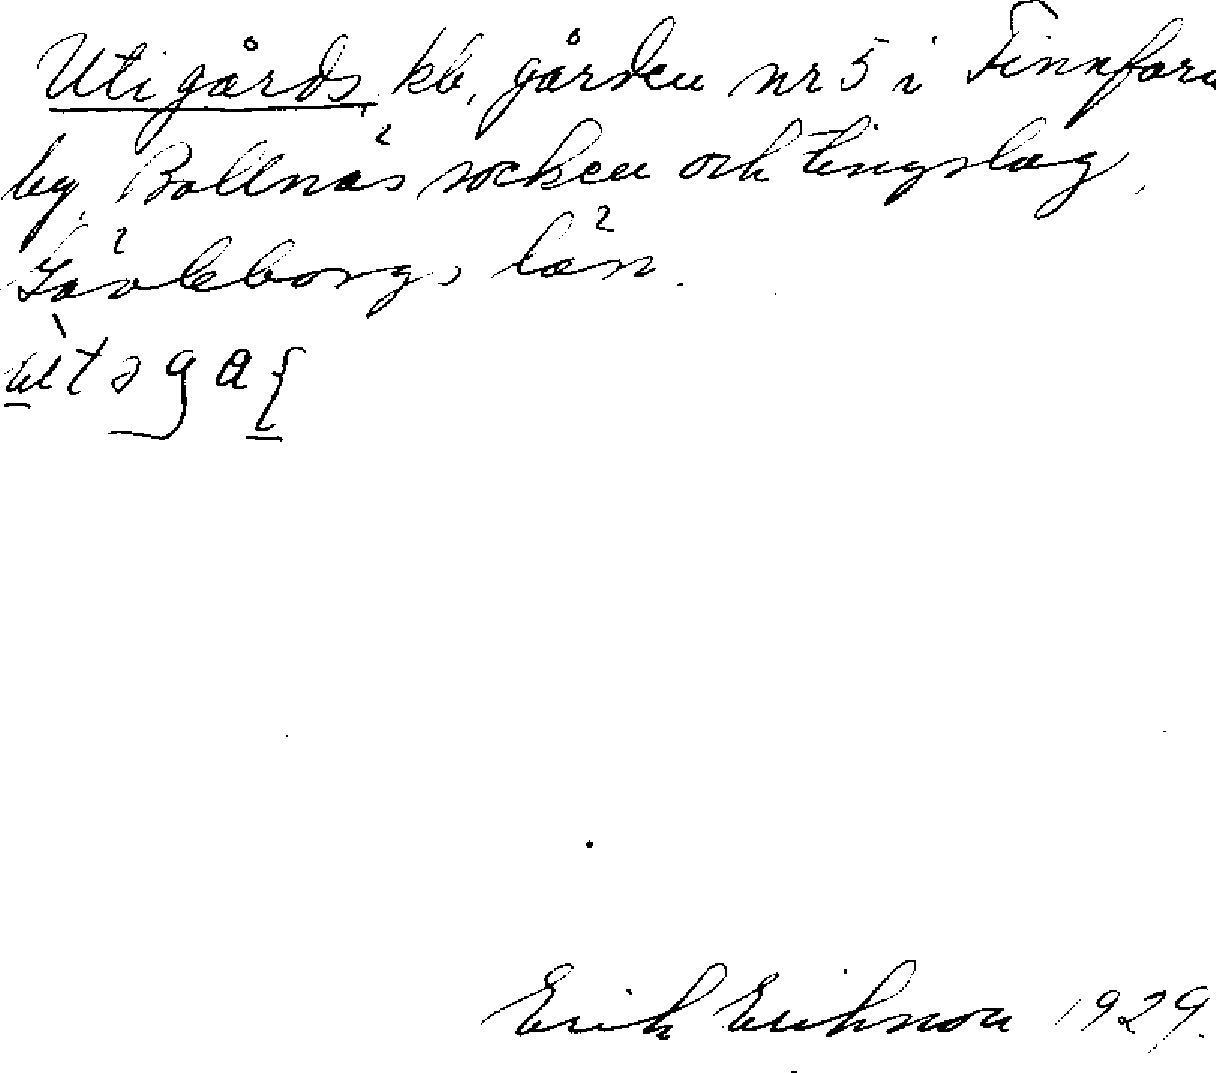 Utigårds, kb, gården nr 5 i Finnfara
by, Bollnäs socken och tingslag,
Gävleborgs län.
Erik Erikson 1929.